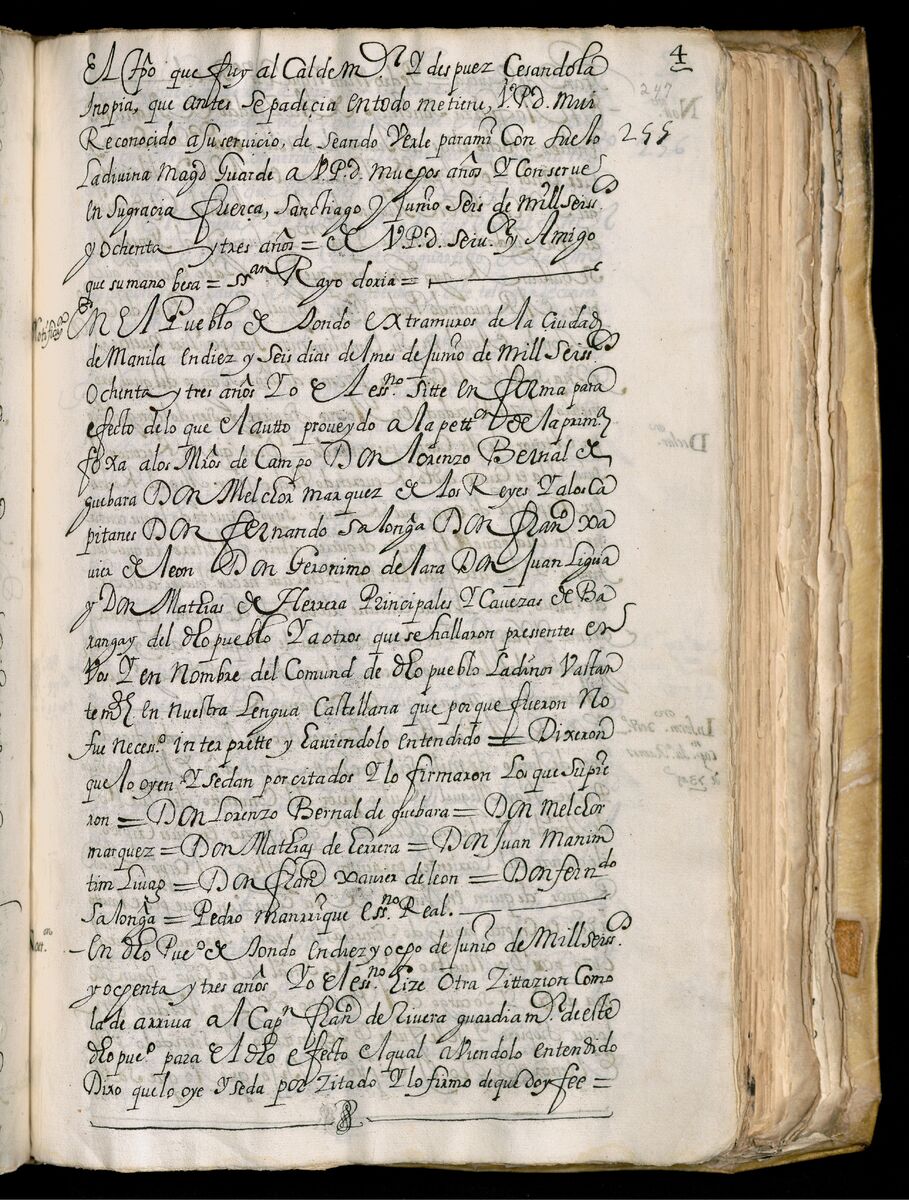 4
247
255
El tpo que fuy alCalde mr. Y despuez Cesandola
Inopia, que antes sepadeçia entodo metiene, V.Pd. mui
Reconocido asuservicio, de seando Verle paramr Con suelo
Ladivina Magd Guarde a V.P.d. muchos años Y Conserve
en sugraçia fuerça, Sanctiago y Junio Seis de mill seiss.
y ochenta y tres años = de V.P.d. Seru.or y Amigo
que sumano besa = Rayo doria =
Notificaçon
En El Pueblo de tondo extramuros de la Ciudad
de Manila endiez y Seis dias delmes de Junio de Mill Seiss.os
Ochenta y tres años Yo El ess.no Sitte en forma para
efecto delo que El autto proveydo a la pett.on de la prim.a
foxa alos Mros de Campo Don Lorenzo Bernal de
guebara Don Melchor marquez de los Reyes Y alos Ca
pitanes Don fernando Salonga Don Fran.co xa
vier de leon Don Geronimo de lara Don Juan Liguã
y Don Mathias de Herrera Principales Y Cavezas de Ba
rangay del dho pueblo Y a otros que se hallaron pressentes en
Vos Y en Nombre del Comund de dho pueblo Ladinos Vastan
tem.te en nuestra Lengua Castellana que por que fueron No
fue necess.o interprette y haviendolo entendido = Dixeron
que lo oyen Y sedan por citados Y lo firmaron Los que supie
ron = Don Lorenzo Bernal de guebara = Don Melchor
marquez = Don Mathias de herrera = Don Juan Manim
tim = Don Fran.co xavier de leon = Don fern.do
Salonga = Pedro Manrrique Ess.no Real.
En dho Pue.o de tondo endiez y ocho de Junio de Mill seiss.os
y ochenta y tres años Yo el ess.no hize Otra Zittazion Como
la de arriva al Cap.n fran.co de Rivera guardia m.r de este
dho pue.o para El dho efecto el qual aviendolo entendido
Dixo que lo oye Y se da por Zitado Y lo firmo de que doy fee =